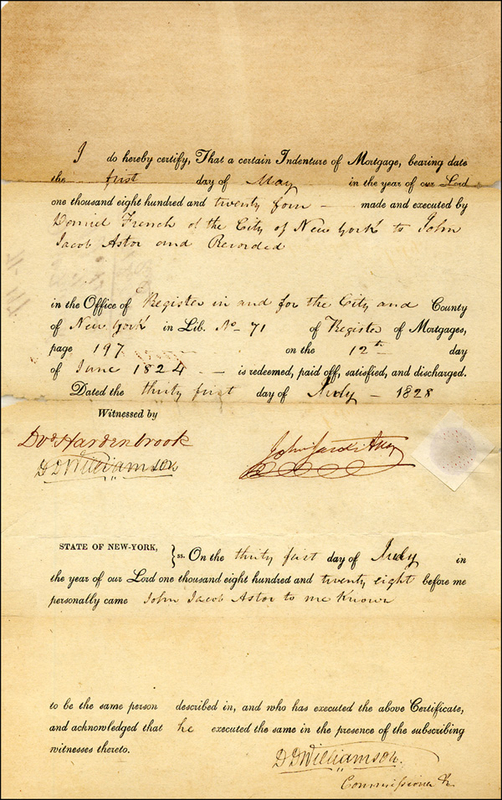 I do hereby certify, That a certain Indenture of Mortgage, bearing date
the first day of May in the year of our Lord
one thousand eight hundred and twenty four made and executed by
Daniel French of the City of New York to John
Jacob Astor and Recorded
in the Office of Register in and for the City and County
of New York in Lib. No 71 of Register of Mortgages,
page 197 on the 12th day
of June 1824 is redeemed, paid off, satisfied, and discharged.
Dated the thirty first day of July 1828
Witnessed by
Hardenbrook John Jacob Astor
D D Williamson
STATE OF NEW-YORK, } ss. On the thirty first day of July in
the year of our Lord one thousand eight hundred and twenty eight before me
personally came John Jacob Astor to me Known
to be the same person described in, and who has executed the above Certificate,
and acknowledged that he executed the same in the presence of the subscribing
witnesses thereto.
D D Williamson